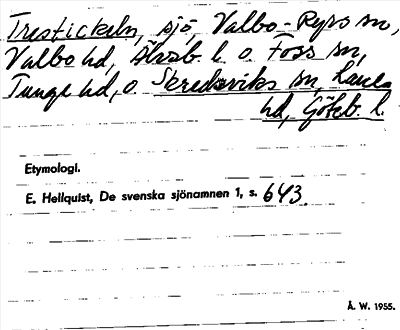 Trestickeln, sjö Valbo-Ryrs sn,
Valbo hd, Älvsb. l. o. Foss sn,
Tunge hd, o. Skredsviks sn, Lane
hd, Göteb. l.
Etymologi.
E. Hellquist, De svenska sjönamnen 1, s. 643.
Å. W. 1955.